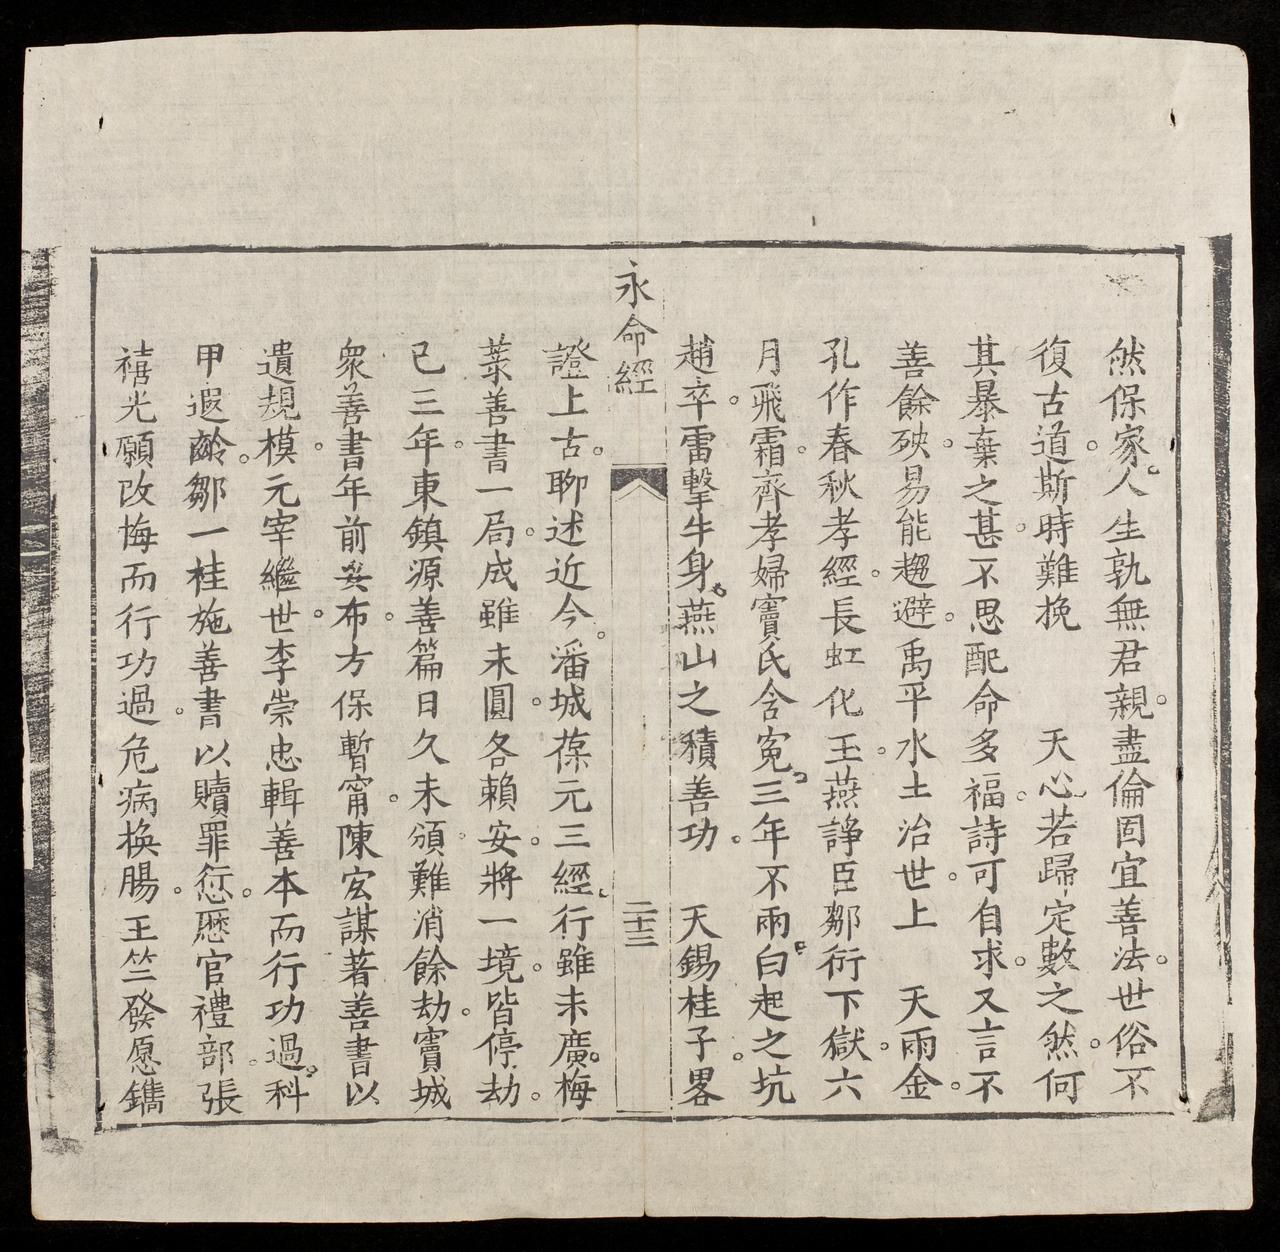 然保家人生孰無君親盡倫固宜善法世俗不
復古道斯時難挽　天心若歸定數之然何
其暴棄之甚不思配命多福詩可自求又言不
善餘殃易能趨避禹平水土治世上　天雨金
孔作春秋孝經長虹化玉燕諍臣鄒衍下獄六
月飛霜齊孝婦竇氏含冤三年不雨白起之坑
趙卒雷擊牛身燕山之積善功　天錫桂子畧
永命經
二十三
證上古聊述近今潘城葆元三經行雖未廣梅
菉善書一局成雖未圓各賴安將一境皆停劫
已三年東鎮源善篇日久未頒難消餘劫竇城
衆善書年前妥布方保暫甯陳宏謀著善書以
遺規模元宰繼世李崇忠輯善本而行功過科
甲遐齡鄒一桂施善書以贖罪愆歷官禮部張
禧光願改悔而行功過危病换腸王竺發愿鐫